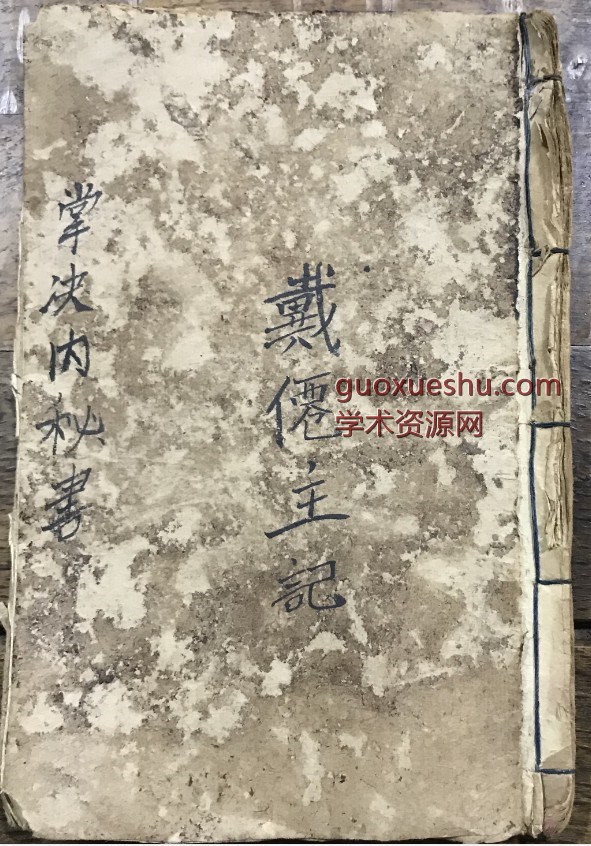 戴僊主記
掌决内秘書
guoxueshu.com
学术资源网